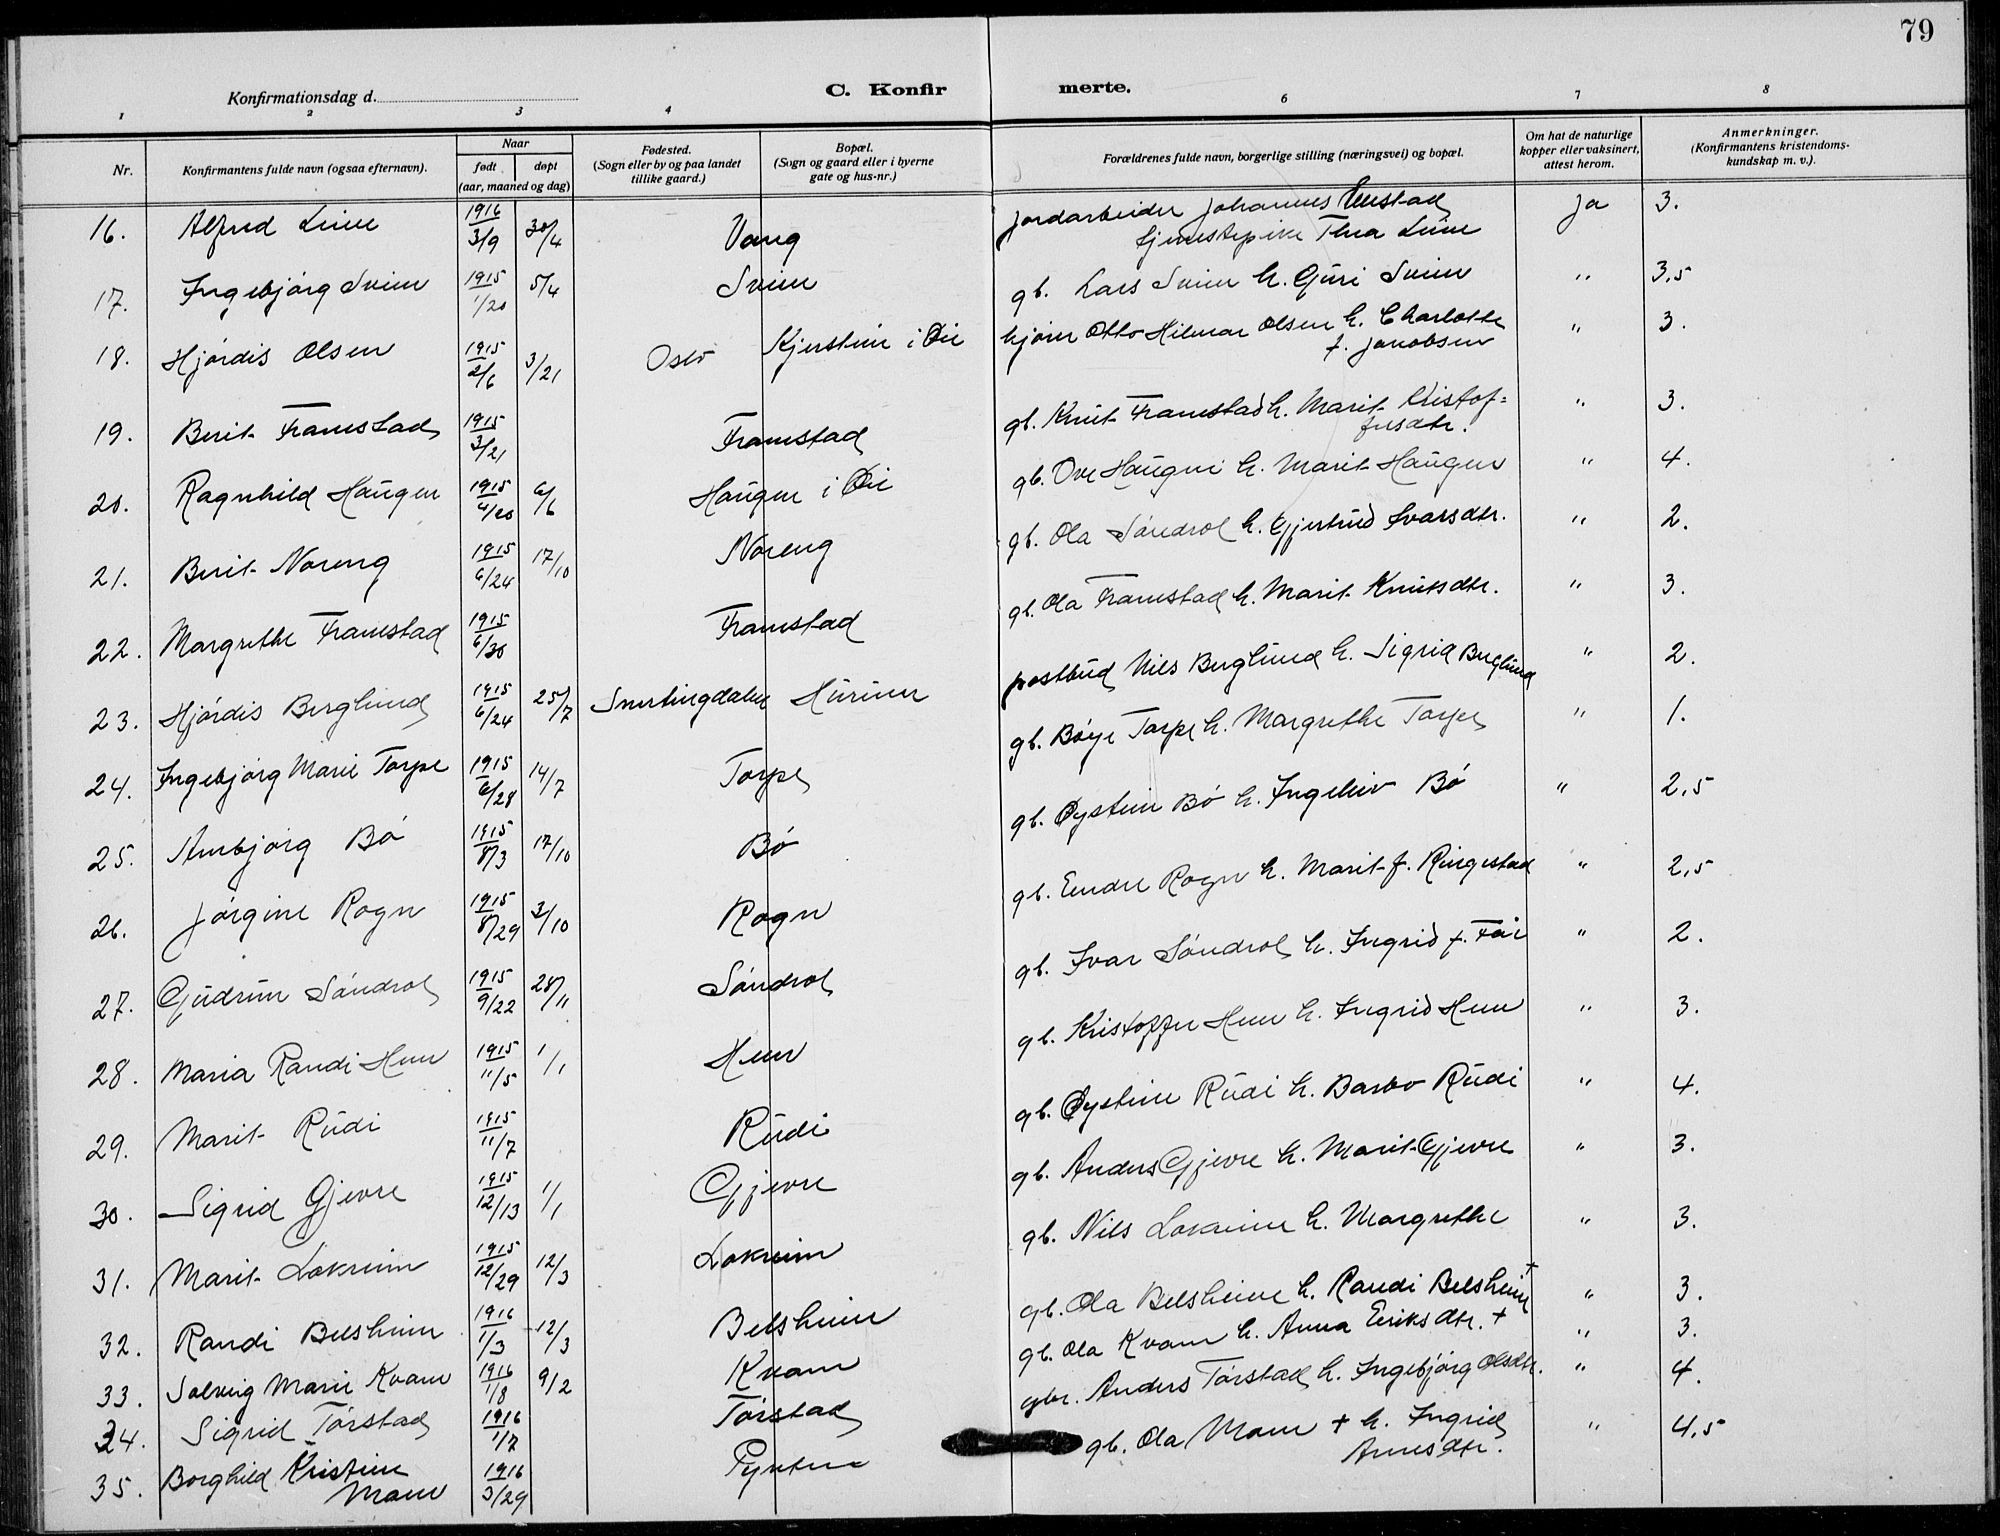 79
Konfirmationsdag d.
C. Konfirmerte.
1 2 3 4 6 7 8
Nr.
Konfirmantens fulde navn (ogsaa efternavn).
Naar
født
døpt
(aar, maaned og dag)
Fødested.
(Sogn eller by og paa landet
tillike gaard.)
Bopæl.
(Sogn og gaard eller i byerne
gate og hus-nr.)
Forældrenes fulde navn, borgerlige stilling (næringsvei) og bopæl.
Om hat de naturlige
kopper eller vaksinert,
attest herom.
Anmerkninger.
(Konfirmantens kristendoms-
kundskap m. v.).
16. Alfred 1916 3/9 30/4 Vang jordarbeider Johannes ja 3.
tjenestepike Thea
17. Ingebjörg Sviin 1915 1/20 5/4 Sviin gb. Lars Sviin h. Guri Sviin " 3,5
18. Hjördis Olsen 1915 2/6 3/21 Oslo i Øie Otto Hilmar Olsen h. Charlotte " 3.
f. Jacobsen
19. Berit Framstad 1915 3/21 Framstad gb. Knut Framstad h. Marit Kristof=
fersdtr. " 3.
20. Ragnhild Haugen 1915 4/20 6/6 Haugen i Øie gb. Ove Haugen h. Marit Haugen " 4.
21. Berit Noreng 1915 6/24 17/10 Noreng gb. Ola Söndrol h. Gjertrud Ivarsdtr. " 2.
22. Margrethe Framstad 1915 6/30 Framstad gb. Ola Framstad h. Marit Knutsdtr. " 3.
23. Hjördis Berglund 1915 6/24 25/7 Snertingdalen Hurum postbud Nils Berglund h. Sigrid Berglund " 2.
24. Ingebjörg Marie Torpe 1915 6/28 14/7 Torpe gb. Böye Torpe h. Margrethe Torpe " 1.
25. Arnbjörg Bö 1915 8/3 17/10 Bö gb. Øystein Bö h. Ingeleiv Bö " 2,5
26. Jörgine Rogn 1915 8/29 3/10 Rogn gb. Endre Rogn h. Marit f. Ringestad " 2,5
27. Gudrun Söndrol 1915 9/22 28/11 Söndrol gb. Ivar Söndrol h. Ingrid f. " 2.
28. Maria Randi Hem 1915 11/5 1/1 Hem gb. Kristoffer Hem h. Ingrid Hem " 3.
29. Marit Rudi 1915 11/7 Rudi gb. Øystein Rudi h. Barbo Rudi " 4.
30. Sigrid Gjevre 1915 12/13 1/1 Gjevre gb. Anders Gjevre h. Marit Gjevre " 3.
31. Marit Lokreim 1915 12/29 12/3 Lokreim gb. Nils Lokreim h. Margrethe " 3.
32. Randi Belsheim 1916 1/3 12/3 Belsheim gb. Ola Belsheim h. Randi Belsheim + " 3.
33. Solveig Marie Kvam 1916 1/8 9/2 Kvam gb. Ola Kvam h. Anna Eriksdtr. + " 3.
34. Sigrid Törstad 1916 1/7 Törstad gbr. Anders Törstad h. Ingebjörg Olsdtr. " 4.
35. Borghild Kristine 1916 3/29 gb. Ola + h. Ingrid " 4,5
Arnesdtr.